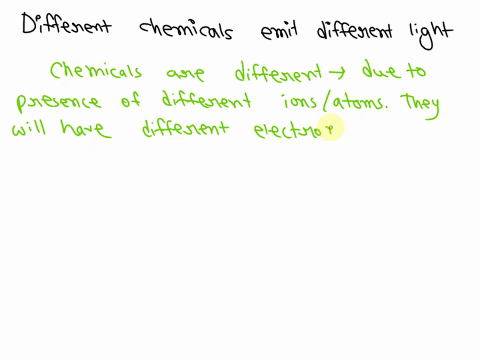 Different chemicals emit different light
Chemicals are different → due to
presence of different ions/atoms. They
will have different electron